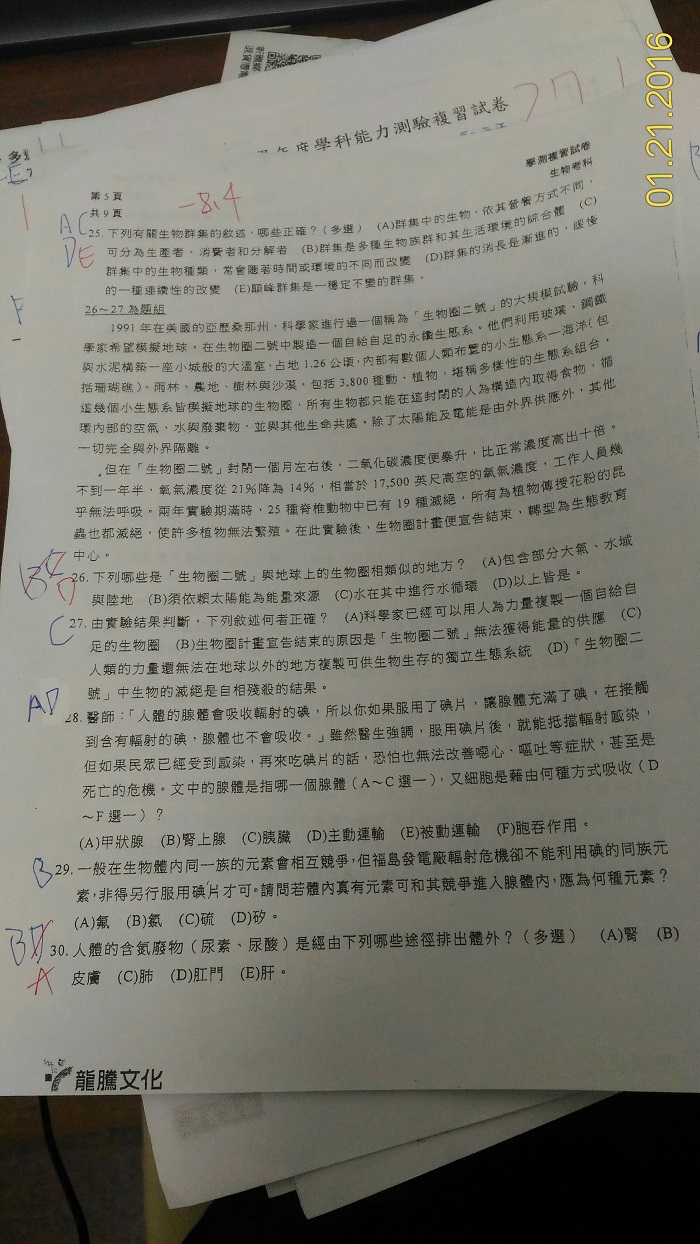 01.21.2016
年度學科能力測驗複習試卷
77.1
第5頁
共9頁
-8.4
學測複習試卷
生物考科
AC
DE
25.下列有關生物群集的敘述,哪些正確?(多選) (A)群集中的生物,依其營養方式不同,
可分為生產者、消費者和分解者 (B)群集是多種生物族群和其生活環境的綜合體 (C)
群集中的生物種類,常會隨著時間或環境的不同而改變 (D)群集的消長是漸進的,緩慢
的一種連續性的改變 (E)巔峰群集是一穩定不變的群集。
26~27為題組
1991年在美國的亞歷桑那州,科學家進行過一個稱為「生物圈二號」的大規模試驗,科
學家希望模擬地球,在生物圈二號中製造一個自給自足的永續生態系。他們利用玻璃、鋼鐵
與水泥構築一座小城般的大溫室,占地1.26公頃,內部有數個人類布置的小生態系—海洋(包
括珊瑚礁)、雨林、農地、樹林與沙漠。包括3,800種動、植物,堪稱多樣性的生態系組合,
這幾個小生態系皆模擬地球的生物圈,所有生物都只能在這封閉的人為構造內取得食物,循
環內部的空氣、水與廢棄物,並與其他生命共處。除了太陽能及電能是由外界供應外,其他
一切完全與外界隔離。
但在「生物圈二號」封閉一個月左右後,二氧化碳濃度便暴升,比正常濃度高出十倍。
不到一年半,氧氣濃度從21%降為14%,相當於17,500英尺高空的氧氣濃度,工作人員幾
乎無法呼吸。兩年實驗期滿時,25種脊椎動物中已有19種滅絕,所有為植物傳授花粉的昆
蟲也都滅絕,使許多植物無法繁殖。在此實驗後,生物圈計畫便宣告結束,轉型為生態教育
中心。
D
26.下列哪些是「生物圈二號」與地球上的生物圈相類似的地方? (A)包含部分大氣、水域
與陸地 (B)須依賴太陽能為能量來源 (C)水在其中進行水循環 (D)以上皆是。
C
27.由實驗結果判斷,下列敘述何者正確? (A)科學家已經可以用人為力量複製一個自給自
足的生物圈 (B)生物圈計畫宣告結束的原因是「生物圈二號」無法獲得能量的供應 (C)
人類的力量還無法在地球以外的地方複製可供生物生存的獨立生態系統 (D)「生物圈二
號」中生物的滅絕是自相殘殺的結果。
AD
28.醫師:「人體的腺體會吸收輻射的碘,所以你如果服用了碘片,讓腺體充滿了碘,在接觸
到含有輻射的碘,腺體也不會吸收。」雖然醫生強調,服用碘片後,就能抵擋輻射感染,
但如果民眾已經受到感染,再來吃碘片的話,恐怕也無法改善噁心、嘔吐等症狀,甚至是
死亡的危機。文中的腺體是指哪一個腺體(A~C選一),又細胞是藉由何種方式吸收(D
~F選一)?
(A)甲狀腺 (B)腎上腺 (C)胰臟 (D)主動運輸 (E)被動運輸 (F)胞吞作用。
B
29.一般在生物體內同一族的元素會相互競爭,但福島發電廠輻射危機卻不能利用碘的同族元
素,非得另行服用碘片才可。請問若體內真有元素可和其競爭進入腺體內,應為何種元素?
(A)氟 (B)氯 (C)硫 (D)矽。
B
A
30.人體的含氮廢物(尿素、尿酸)是經由下列哪些途徑排出體外?(多選) (A)腎 (B)
皮膚 (C)肺 (D)肛門 (E)肝。
龍騰文化